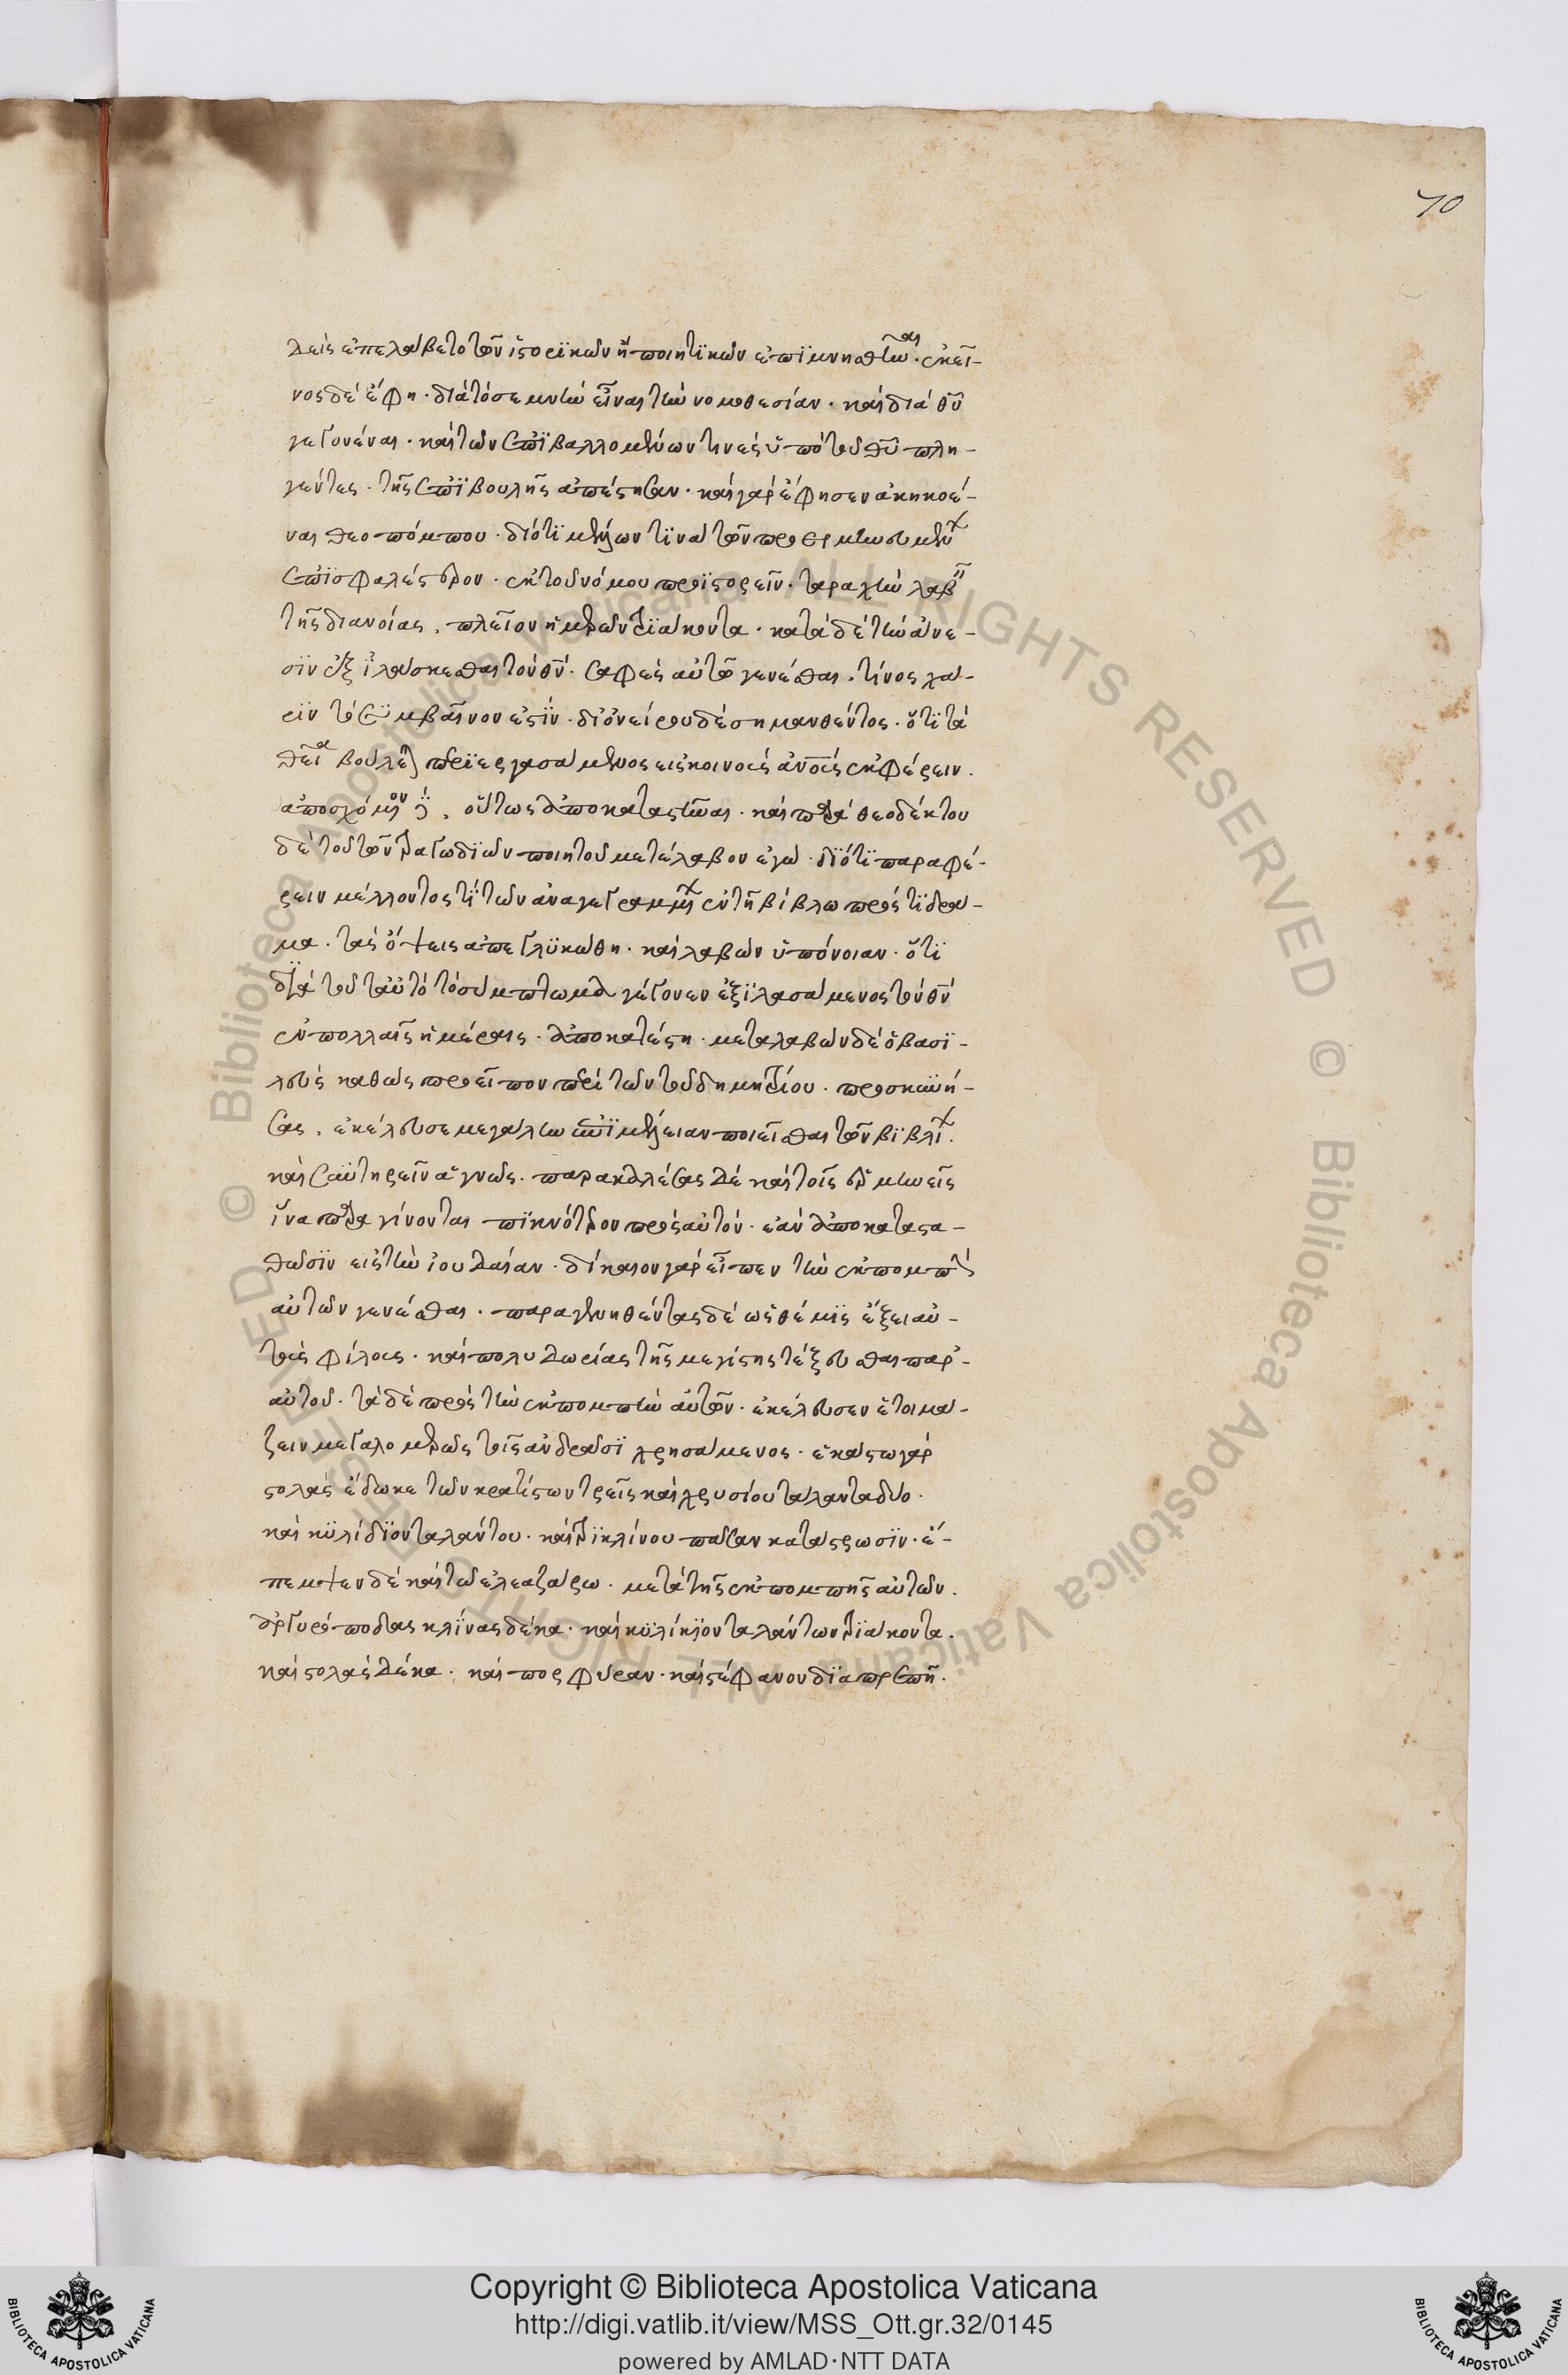 70
δεὶς ἐπελάβετο τῶν ἱστορϊκῶν ἢ ποιητϊκῶν ἐπϊμνησθῆναι. ἐκεῖ-
νος δὲ ἔφη· διὰ τὸ σεμνὴν εἶναι τὴν νομοθεσίαν. καὶ διὰ θῡ
γεγονέναι. καὶ τῶν ἐπϊβαλλομένων τινὲς ὑπὸ τοῦ θῡ πλη-
γέντες. τῆς ἐπϊβουλῆς ἀπέστησαν. καὶ γὰρ ἔφησεν ἀκηκοέ-
ναι θεοπόμπου. διότϊ μέλλων τϊνὰ τῶν προερμηνευμένων
ἐπϊσφαλέστερον. ἐκ τοῦ νόμου προϊστορεῖν. ταραχὴν λαβεῖν
τῆς διανοίας. πλεῖον ἡμερῶν τρϊάκοντα. κατὰ δὲ τὴν ἄνε-
σϊν ἐξϊλάσκεσθαι τὸν θν̄. σαφὲς αὐτῶ γενέσθαι. τίνος χά-
ρϊν τὸ συμβαῖνον ἐστϊν. δι' ὀνείρου δὲ σημανθέντος. ὅτϊ τὰ
θεῖα βούλεται περϊεργασάμενος εἰς κοινοὺς ἀν̄ους ἐκφέρειν.
ἀποσχόμενον δὲ. οὕτως ἀποκαταστῆναι. καὶ παρὰ θεοδέκτου
δὲ τοῦ τῶν τραγωδϊῶν ποιητοῦ μετέλαβον ἐγώ. δϊότϊ παραφέ-
ρειν μέλλοντος τϊ τῶν ἀναγεγραμμένων ἐν τῆ βίβλω πρός τϊ δρά-
μα. τὰς ὄψεις ἀπεγλϋκώθη. καὶ λαβὼν ὑπόνοιαν. ὅτϊ
δϊὰ τοῦτ' αὐτὸ τὸ σύμπτωμα γέγονεν ἐξϊλασάμενος τὸν θν̄
ἐν πολλαῖς ἡμέραις. ἀποκατέστη. μεταλαβὼν δὲ ὁ βασϊ-
λεὺς καθὼς προεῖπον περὶ τῶν τοῦ δημητρίου. προσκϋνή-
σας. ἐκέλευσε μεγάλην ἐπϊμέλειαν ποιεῖσθαι τῶν βϊβλίων.
καὶ σϋντηρεῖν ἁγνῶς. παρακαλέσας δὲ καὶ τοὺς ἑρμηνεῖς
ἵνα παραγίνονται πϋκνότερον πρὸς αὐτόν. ἐὰν ἀποκαταστα-
θῶσϊν εἰς τὴν ἰουδαίαν. δίκαιον γὰρ εἶπεν τὴν ἐκπομπὴν
αὐτῶν γενέσθαι. παραγενηθέντας δὲ ὡς θέμϊς ἕξειν αὐ-
τοὺς φίλους. καὶ πολυδωρίας τῆς μεγίστης τέξευσθαι παρ'-
αὐτοῦ. τὰ δὲ πρὸς τὴν ἐκπομπὴν αὐτῶν. ἐκέλευσεν ἑτοιμά-
ζειν μεγαλομερῶς τοῖς ἀνδράσϊ χρησάμενος. ἑκάστω γὰρ
στολὰς ἔδωκε τῶν κρατίστων τρεῖς καὶ χρυσίου τάλαντα δύο.
καὶ κϋλίδϊον ταλάντου. καὶ τρϊκλίνου πᾶσαν κατάστρωσϊν. ἔ-
πεμψεν δὲ καὶ τῶ ἐλεαζάρω. μετὰ τῆς ἐκπομπῆς αὐτῶν.
ἀργυρόποδας κλίνας δέκα. καὶ κϋλίκϊον ταλάντων τρϊάκοντα.
καὶ στολὰς δέκα. καὶ πορφύραν. καὶ στέφανον δϊαπρεπῆ.
Copyright © Biblioteca Apostolica Vaticana
http://digi.vatlib.it/view/MSS_Ott.gr.32/0145
powered by AMLAD·NTT DATA
BIBLIOTECA APOSTOLICA VATICANA
BIBLIOTECA APOSTOLICA VATICANA
© Biblioteca Apostolica Vaticana ALL RIGHTS RESERVED © Biblioteca Apostolica Vaticana ALL RIGHTS RESERVED